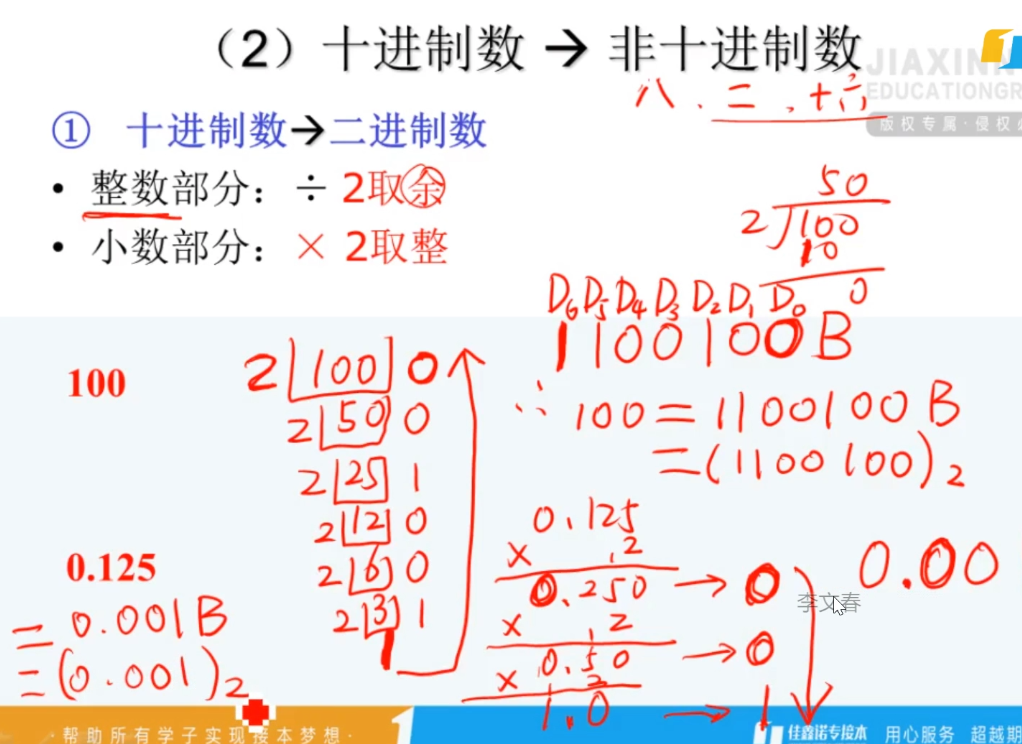 （2）十进制数 → 非十进制数
JIAXINN
EDUCATIONGR
版权专属·侵权必
八、二、十六
① 十进制数→二进制数
• 整数部分：÷ 2取余
• 小数部分：× 2取整
50
2 100
10
0
D6 D5 D4 D3 D2 D1 D0
1100100B
100
2 100 0
2 50 0
2 25 1
2 12 0
2 6 0
2 3 1
1
∴ 100=1100100B
=(1100100)2
0.125
=0.001B
=(0.001)2
0.125
× 2
0.250 → 0
× 2
0.50 → 0
× 2
1.0 → 1
0.00
李文春
·帮助所有学子实现接本梦想·
佳鑫诺专接本
用心服务 超越期